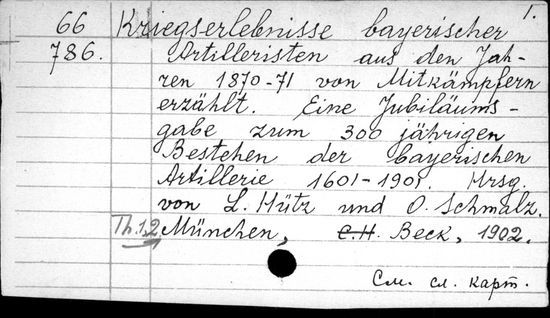 1.
66 Kriegserlebnisse bayerischer
786. Artilleristen aus den Jah-
ren 1870-71 von Mitkämpfern
erzählt. Eine Jubiläums-
gabe zum 300 jährigen
Bestehen der bayerischen
Artillerie 1601-1901. Hrsg.
von L. Hütz und O. Schmalz.
Th.1,2 München, C.H. Beck, 1902.
См. сл. карт.